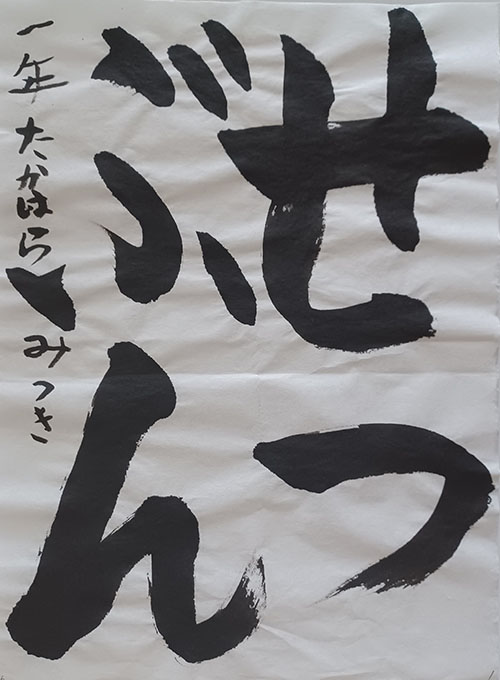 せつ
ぶん
一年 たかはら みつき